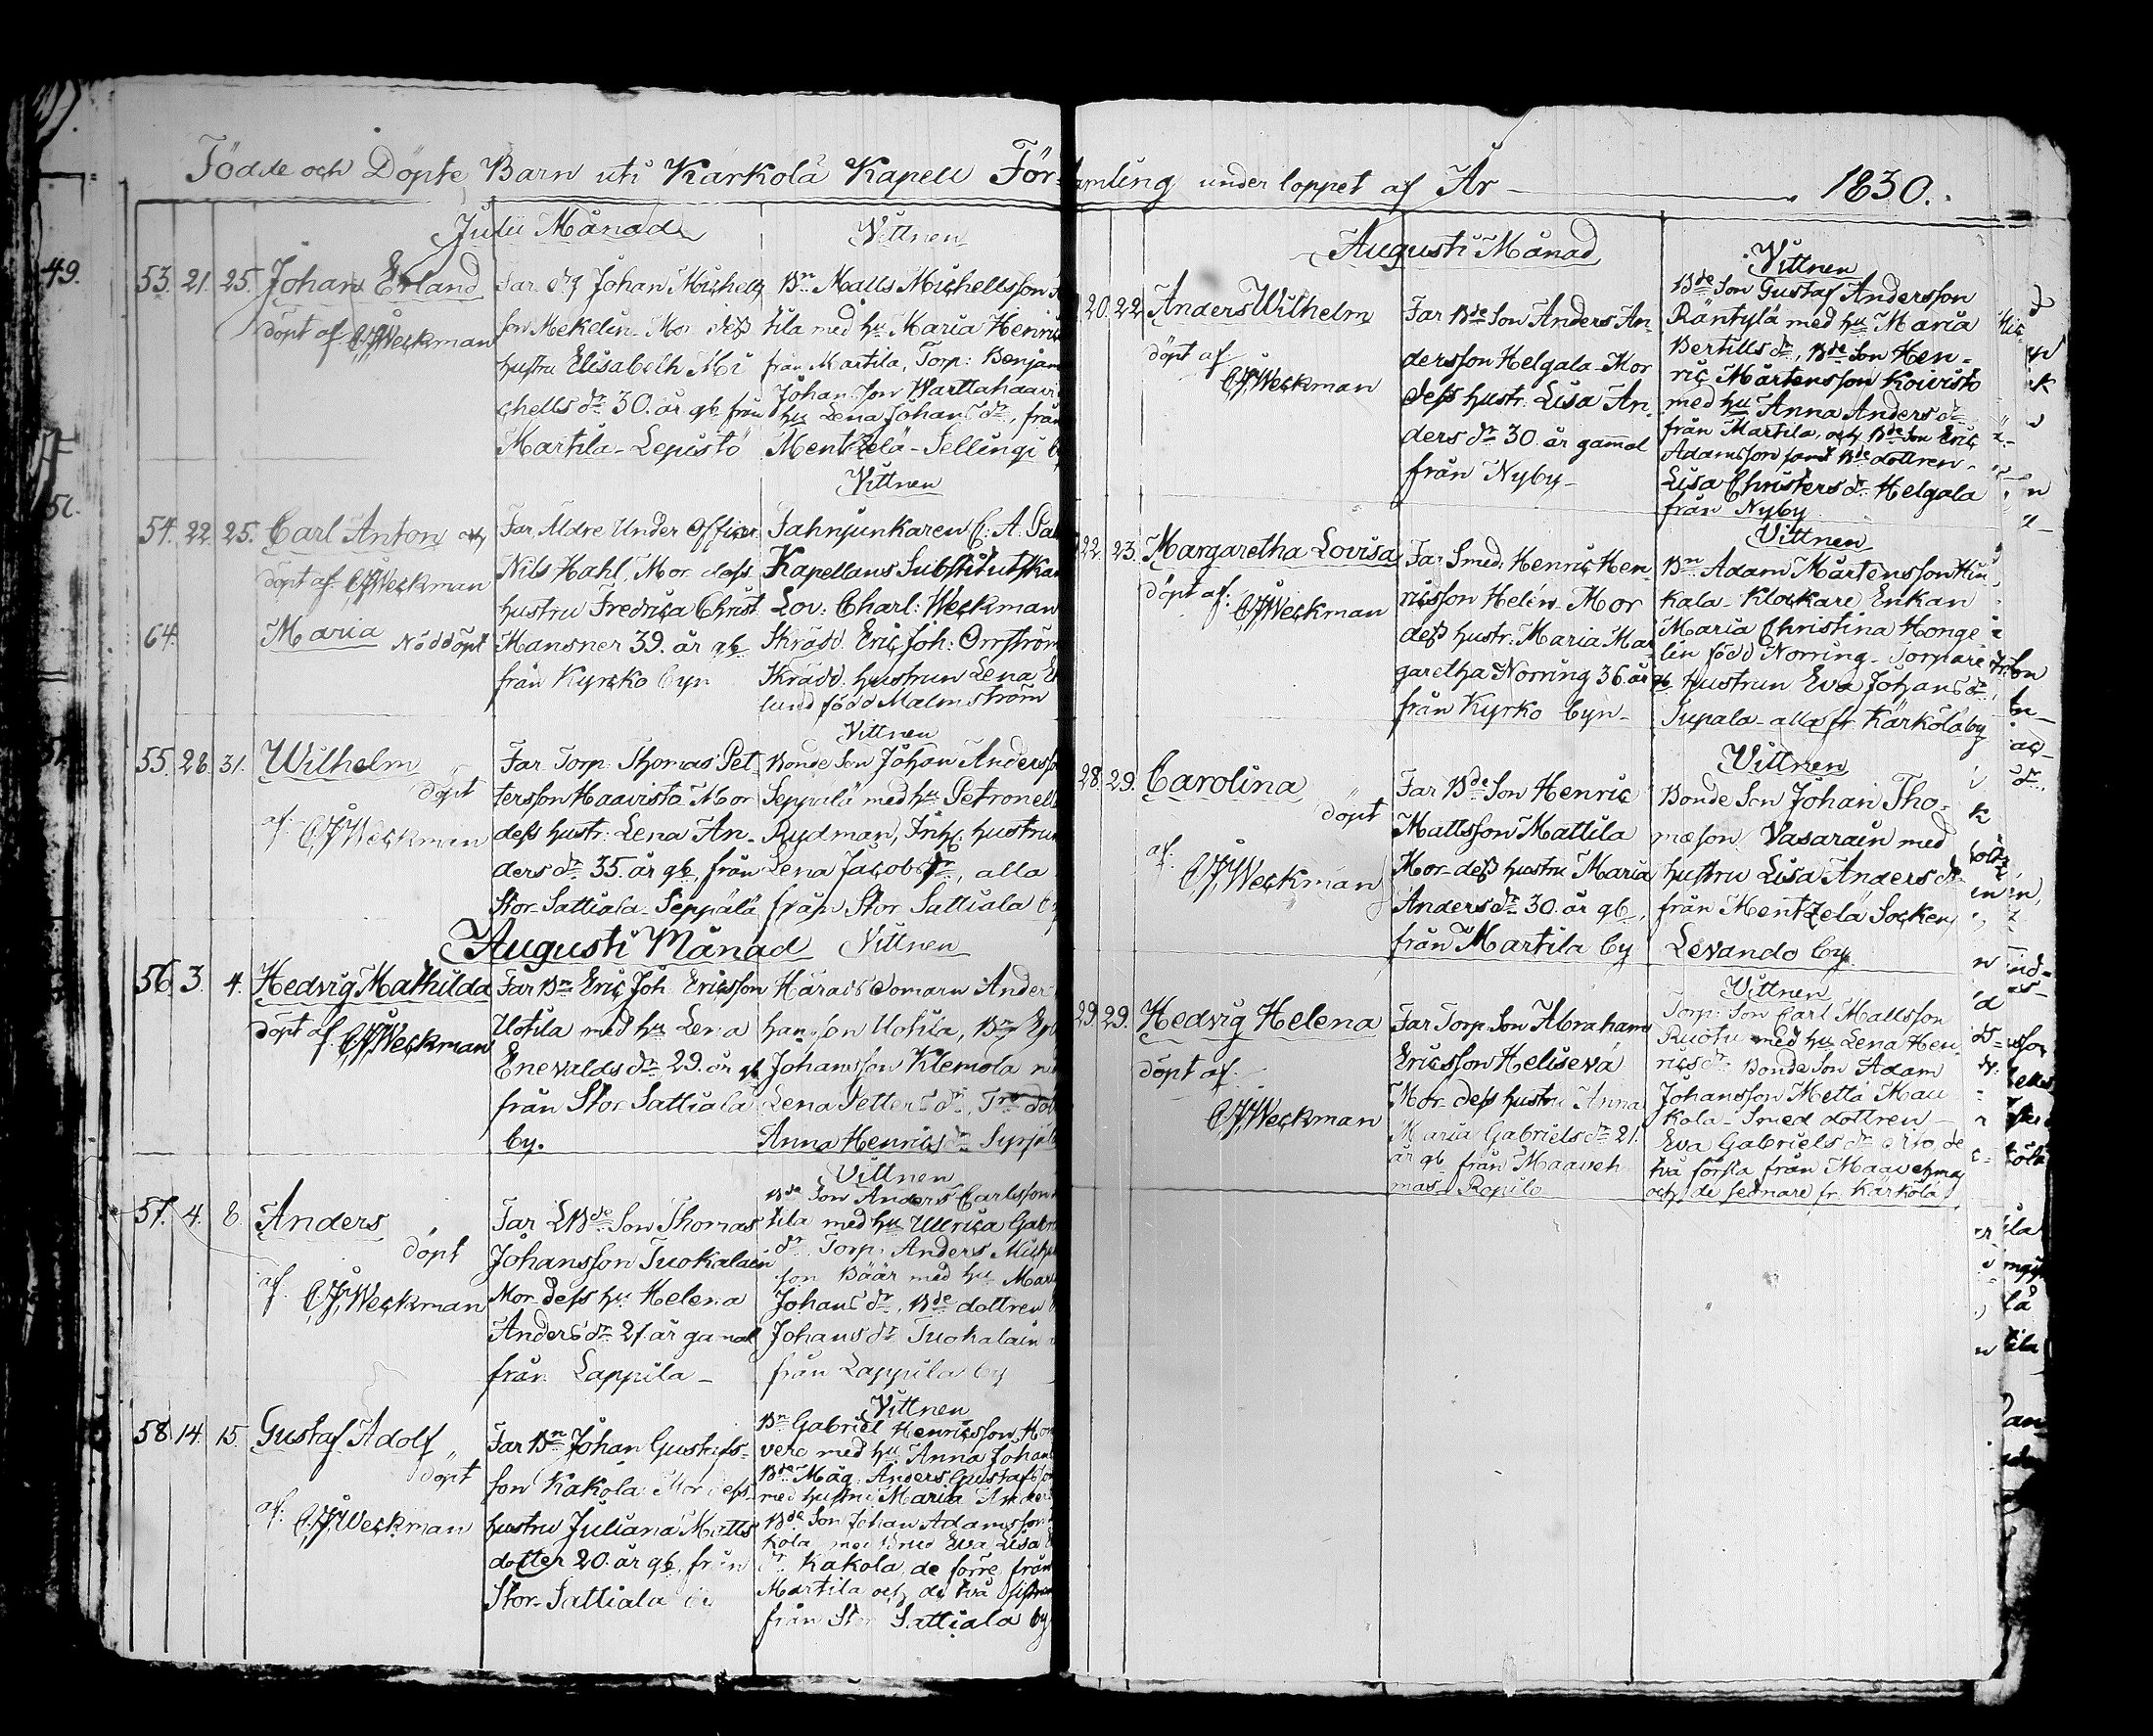 Födde och Döpte Barn uti Kärkölä Kapell För
Julii Månad
Vittnen
53. 21. 25. Johan Erland
döpt af C.J. Weckman
Far Johan Michells
son Mekelin Mor dess
hustru Elisabeth Mi
chells dr 30. år gb från
Martila Lepistö
Bn Matts Michellsson
tila med hu Maria Henric
från Martila, Torp: Benjam
Johansson Warttahaavi
hu Lena Johans dr, från
Mentzelä - Sellingi
Vittnen
54. 22. 25. Carl Anton och
döpt af C.J. Weckman
64. Maria Nöddöpt
Far Äldre Under Officer
Nils Hahl, Mor dess
hustru Fredrica Christ
Hansner 39. år gb
från Kyrcko byn
Fahnjunkaren C: A.
Kapellans Substitutskan
Lov: Charl: Weckman
Skrädd. Eric Joh: Orrström
Skrädd. hustrun Lena
lund född Malmström
Vittnen
55. 28. 31. Wilhelm
döpt
af: C.J. Weckman
Far Torp. Thomas Pet
tersson Haavisto Mor
dess hustr: Lena An-
ders dr 35. år gb, från
Stor Sattiala Seppälä
Bonde Son Johan Andersso
Seppälä med hu Petronell
Rydman, Inh: hustrun
Lena Jacobs dr, alla
från Stor Sattiala
Augusti Månad
Vittnen
56. 3. 4. Hedvig Mathilda
döpt af C.J. Weckman
Far Bn Eric Joh Ericsson
Uotila med hu Lena
Enevalds dr 29. år gb
från Stor Sattiala
by.
Härads Domarn Ander
hansson Uotila, Bn
Johansson Klemola
Lena Petters dr,
Anna Henrics dr
Vittnen
57. 4. 8. Anders
döpt
af. C.J. Weckman
Far Bde Son Thomas
Johansson Tuokalain
Mor dess hu Helena
Anders dr 21. år gamal
från Lappila
Bde Son Anders Carlsson
tila med hu Ullrica Gabri
dr Torp: Anders Michel
son Bäär med hu Mari
Johans dr, Bde dottren
Johans dr Tuokalain
från Lappila by
Vittnen
58. 14. 15. Gustaf Adolf
döpt
af: C.J. Weckman
Far Bn Johan Gustafs-
son Kakola Mor dess
hustru Juliana Matts
dotter 20. år gb, från
Stor Sattiala
Bn Gabriel Henricsson
vero med hu Anna Johan
Bde Måg: Anders Gustafsson
med hustru Maria Anders
Bde Son Johan Adamsson
kola med Brud Eva Lisa
dr Kakola, de förre från
Martila och de två
från Stor Sattiala by
amling under loppet af År 1830.
Augusti Månad
Vittnen
20. 22 Anders Wilhelm
döpt af:
C.J. Weckman
Far Bde Son Anders An-
dersson Helgala - Mor
dess hustr: Lisa An-
ders dr 30. år gamal
från Nyby
Bde Son Gustaf Andersson
Räntylä med hu Maria
Bertills dr, Bde Son Hen-
ric Mårtensson Koivisto
med hu Anna Anders dr
från Martila, och Bde Son Eric
Adamsson samt Bde dottren
Lisa Christers dr Helgala
från Nyby
Vittnen
22. 23. Margaretha Lovisa
döpt af:
C.J. Weckman
Far Smed Henric Hen-
ricsson Helén - Mor
dess hustr: Maria Mar-
garetha Norring 36. år gb
från Kyrko byn
Bn Adam Mårtensson
kala - Klockare Enkan
Maria Christina Honge
lin född Norring -
hustrun Eva Johans dr
Supala - alla fr. Kärkölä by
Vittnen
28. 29. Carolina
döpt
af: C.J. Weckman
Far Bde Son Henric
Mattsson Mattila
Mor dess hustru Maria
Anders dr 30. år gb,
från Martila by
Bonde Son Johan Tho-
mæson Vasarain med
hustru Lisa Anders dr
från Mentzelä Socken
Levando by.
Vittnen
29. 29. Hedvig Helena
döpt af:
C.J. Weckman
Far Torp: Son Abraham
Ericsson Helisevä
Mor dess hustru Anna
Maria Gabriels dr 21.
år gb från Maaveh
mas - Repilo
Torp: Son Carl Mattsson
Ruotu med hu Lena Hen
rics dr Bonde Son Adam
Johansson Mettä Mau
kola - Smed dottren
Eva Gabriels dr
två första från Maavehmas
och de sednare fr. Kärkölä